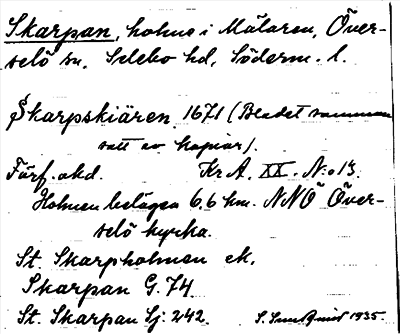 Skarpan, holme i Mälaren, Över-
selö sn, Selebo hd, Söderm. l.
Skarpskiären 1671 (Bladet samman
satt av kopior).
Förf. okd. Kr A. XX. N:o 13.
Holmen belägen 6,6 km. NNÖ Över-
selö kyrka.
St. Skarpholmen ek.
Skarpan G. 74
St. Skarpan Sj. 242. 1935.